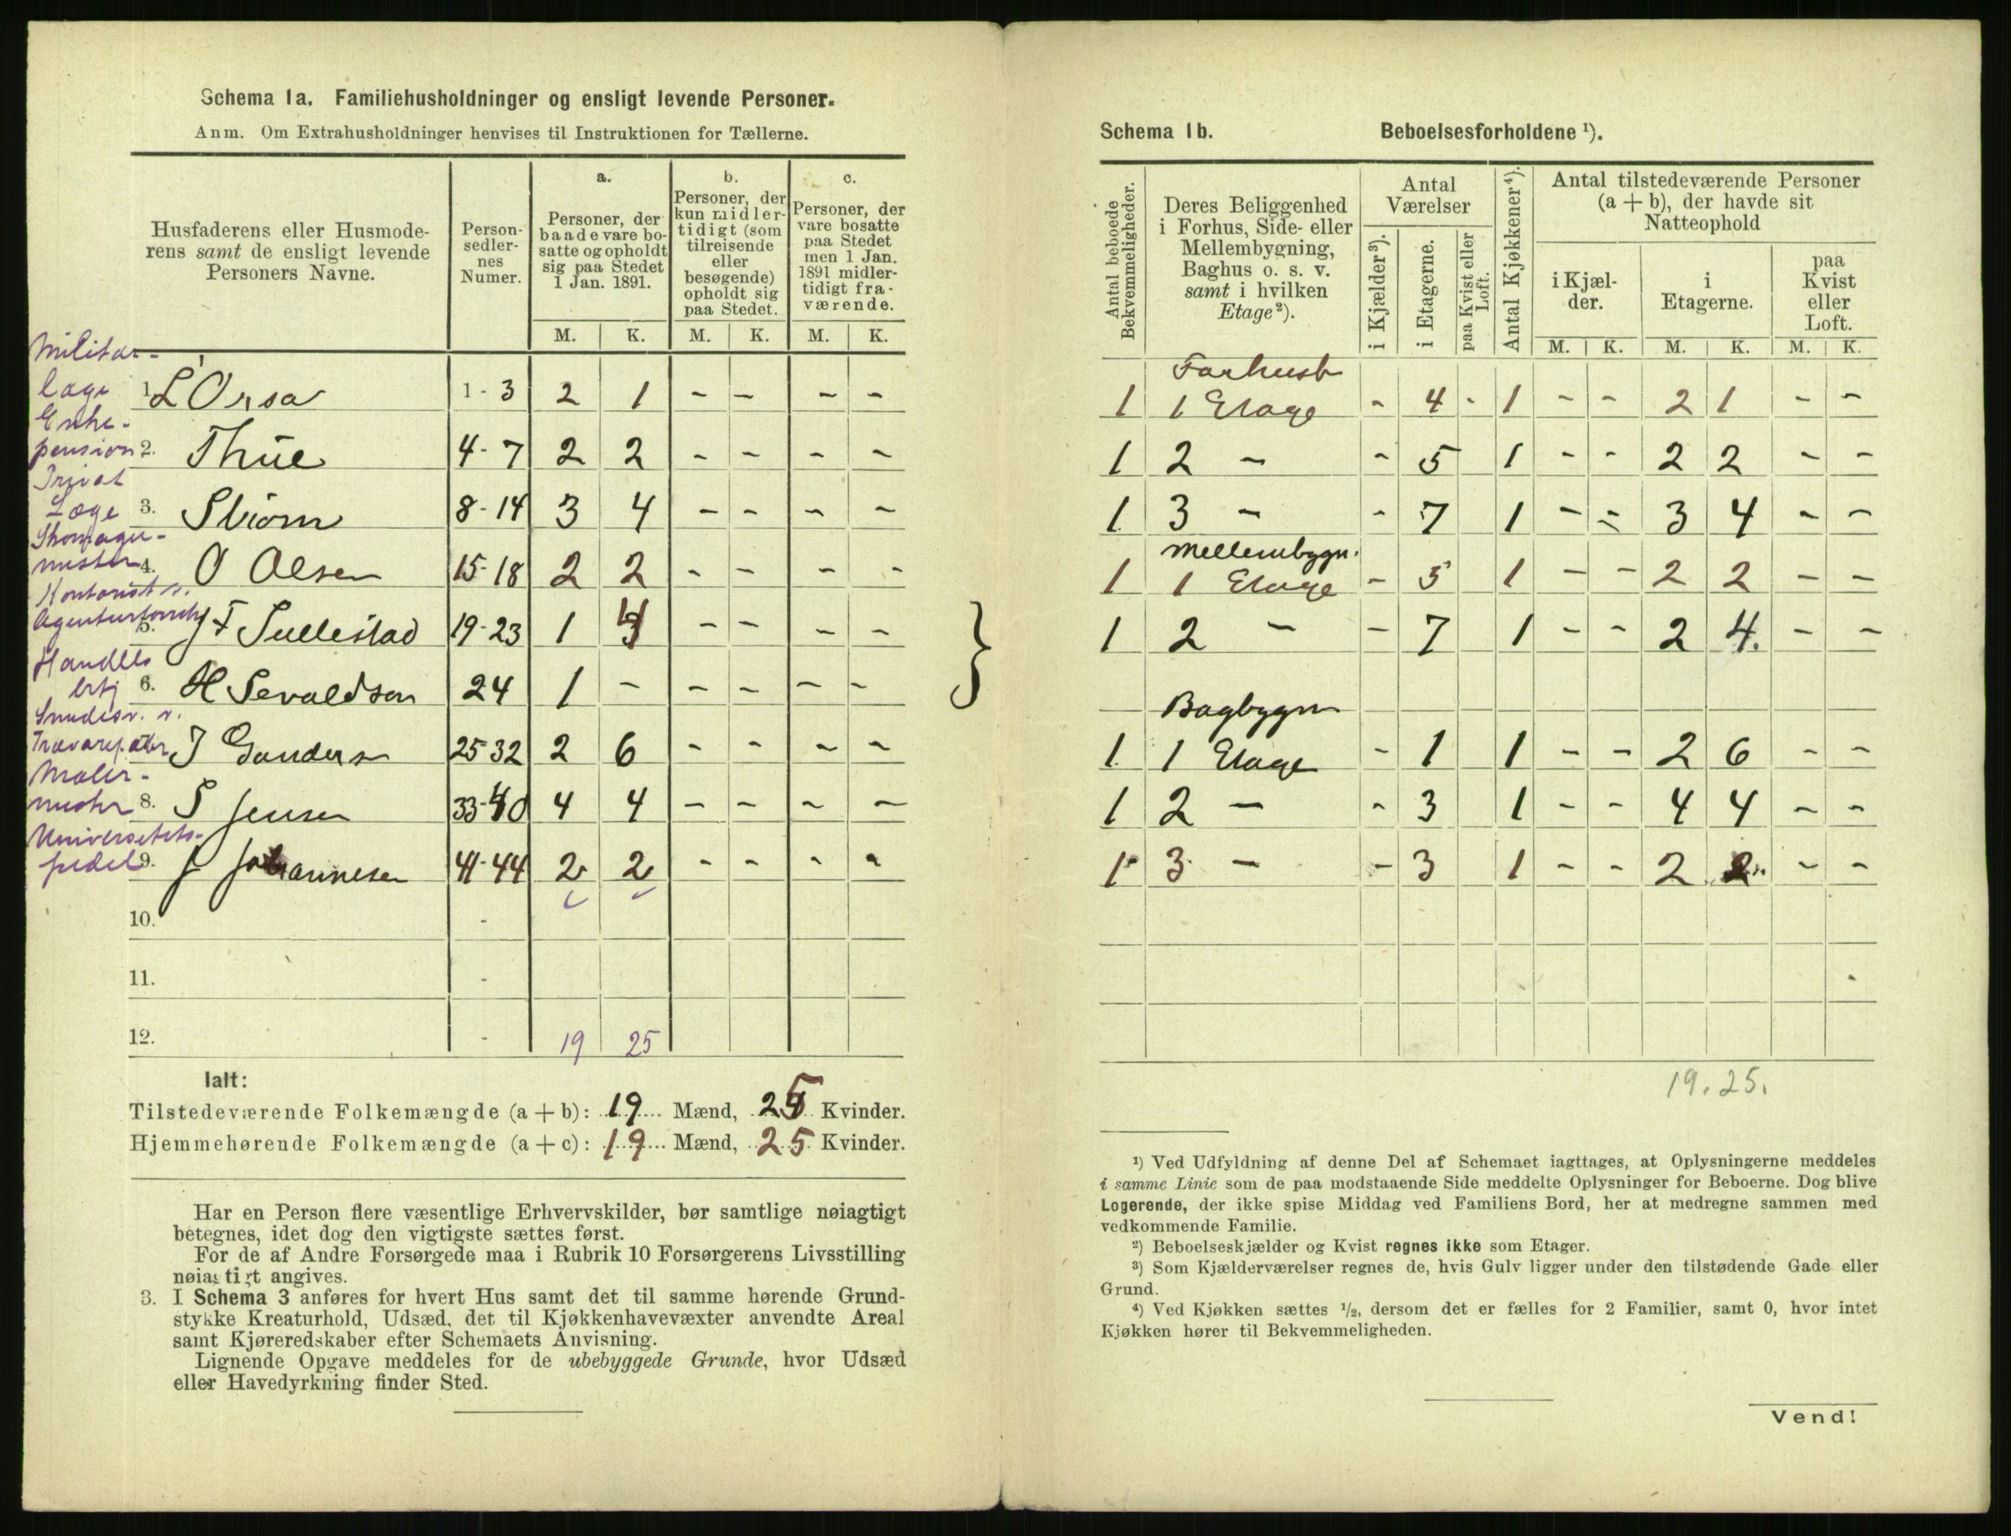 Schema 1a. Familiehusholdninger og ensligt levende Personer.
Anm. Om Extrahusholdninger henvises til Instruktionen for Tællerne.
Husfaderens eller Husmode-
rens samt de ensligt levende
Personers Navne.
Person-
sedler-
nes
Numer.
a.
Personer, der
baade vare bo-
satte og opholdt
sig paa Stedet
1 Jan. 1891.
b.
Personer, der
kun midler-
tidigt (som
tilreisende
eller
besøgende)
opholdt sig
paa Stedet.
c.
Personer, der
vare bosatte
paa Stedet
men 1 Jan.
1891 midler-
tidigt fra-
værende.
M. K. M. K. M. K.
Militær-
læge
1. L'Orsa 1-3 2 1 - - - -
Enke-
pension
2. Thue 4-7 2 2 - - - -
Privat
Læge
3. Strøm 8-14 3 4 - - - -
Skomager-
mester
4. O Olsen 15-18 2 2 - - - -
Kontorist v.
Agenturforretn
5. J F Sullestad 19-23 1 4 - - - -
Handels
betj
6. H Sevaldson 24 1 - - - - -
Snedkersv. v.
Trævarefabr
7. J Gundersen 25-32 2 6 - - - -
Maler-
mester
8. S Jensen 33-40 4 4 - - - -
Universitets-
pedel
9. J Johannesen 41-44 2 2 - - - -
10. -
11. -
12. - 19 25
Ialt:
Tilstedeværende Folkemængde (a + b): 19 Mænd, 25 Kvinder.
Hjemmehørende Folkemængde (a + c): 19 Mænd, 25 Kvinder.
Har en Person flere væsentlige Erhvervskilder, bør samtlige nøiagtigt
betegnes, idet dog den vigtigste sættes først.
For de af Andre Forsørgede maa i Rubrik 10 Forsørgerens Livsstilling
nøiagtigt angives.
3. I Schema 3 anføres for hvert Hus samt det til samme hørende Grund-
stykke Kreaturhold, Udsæd, det til Kjøkkenhavevæxter anvendte Areal
samt Kjøreredskaber efter Schemaets Anvisning.
Lignende Opgave meddeles for de ubebyggede Grunde, hvor Udsæd
eller Havedyrkning finder Sted.
Schema 1b. Beboelsesforholdene ¹).
Antal beboede
Bekvemmeligheder.
Deres Beliggenhed
i Forhus, Side- eller
Mellembygning,
Baghus o. s. v.
samt i hvilken
Etage²).
Antal
Værelser
i Kjælder³).
i Etagerne.
paa Kvist eller
Loft.
Antal Kjøkkener⁴).
Antal tilstedeværende Personer
(a + b), der havde sit
Natteophold
i Kjæl-
der.
i
Etagerne.
paa
Kvist
eller
Loft.
M. K. M. K. M. K.
Forhus
1 1 Etage - 4 - 1 - - 2 1 - -
1 2 - - 5 1 - - 2 2 - -
1 3 - - 7 1 - - 3 4 - -
Mellembygn.
1 1 Etage - 5 1 - - 2 2 - -
1 2 - - 7 1 - - 2 4. - -
Bagbygn
1 1 Etage - 1 1 - - 2 6 - -
1 2 - - 3 1 - - 4 4 - -
1 3 - - 3 1 - - 2 2 - -
19. 25.
¹) Ved Udfyldning af denne Del af Schemaet iagttages, at Oplysningerne meddeles
i samme Linie som de paa modstaaende Side meddelte Oplysninger for Beboerne. Dog blive
Logerende, der ikke spise Middag ved Familiens Bord, her at medregne sammen med
vedkommende Familie.
²) Beboelseskjælder og Kvist regnes ikke som Etager.
³) Som Kjælderværelser regnes de, hvis Gulv ligger under den tilstødende Gade eller
Grund.
⁴) Ved Kjøkken sættes ½, dersom det er fælles for 2 Familier, samt 0, hvor intet
Kjøkken hører til Bekvemmeligheden.
Vend!